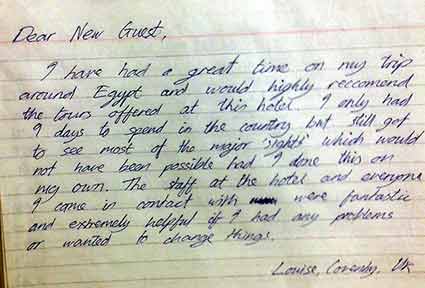 Dear New Guest,
I have had a great time on my trip
around Egypt and would highly reccomend
the tours offered at this hotel. I only had
9 days to spend in the country but still got
to see most of the major 'sights' which would
not have been possible had I done this on
my own. The staff at the hotel and everyone
I came in contact with were fantastic
and extremely helpful if I had any problems
or wanted to change things.
Louise, Coventry, UK